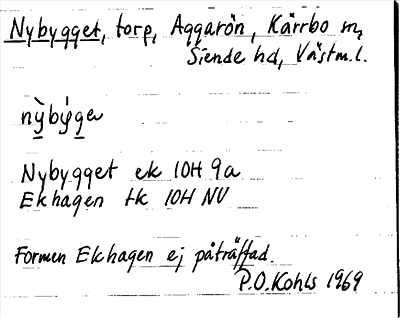 Nybygget, torp, Aggarön, Kärrbo sn,
Siende hd, Västm.l.
nỳbýgə
Nybygget ek 10H 9a
Ekhagen tk 10H NV
Formen Ekhagen ej påträffad.
P.O.Kohls 1969